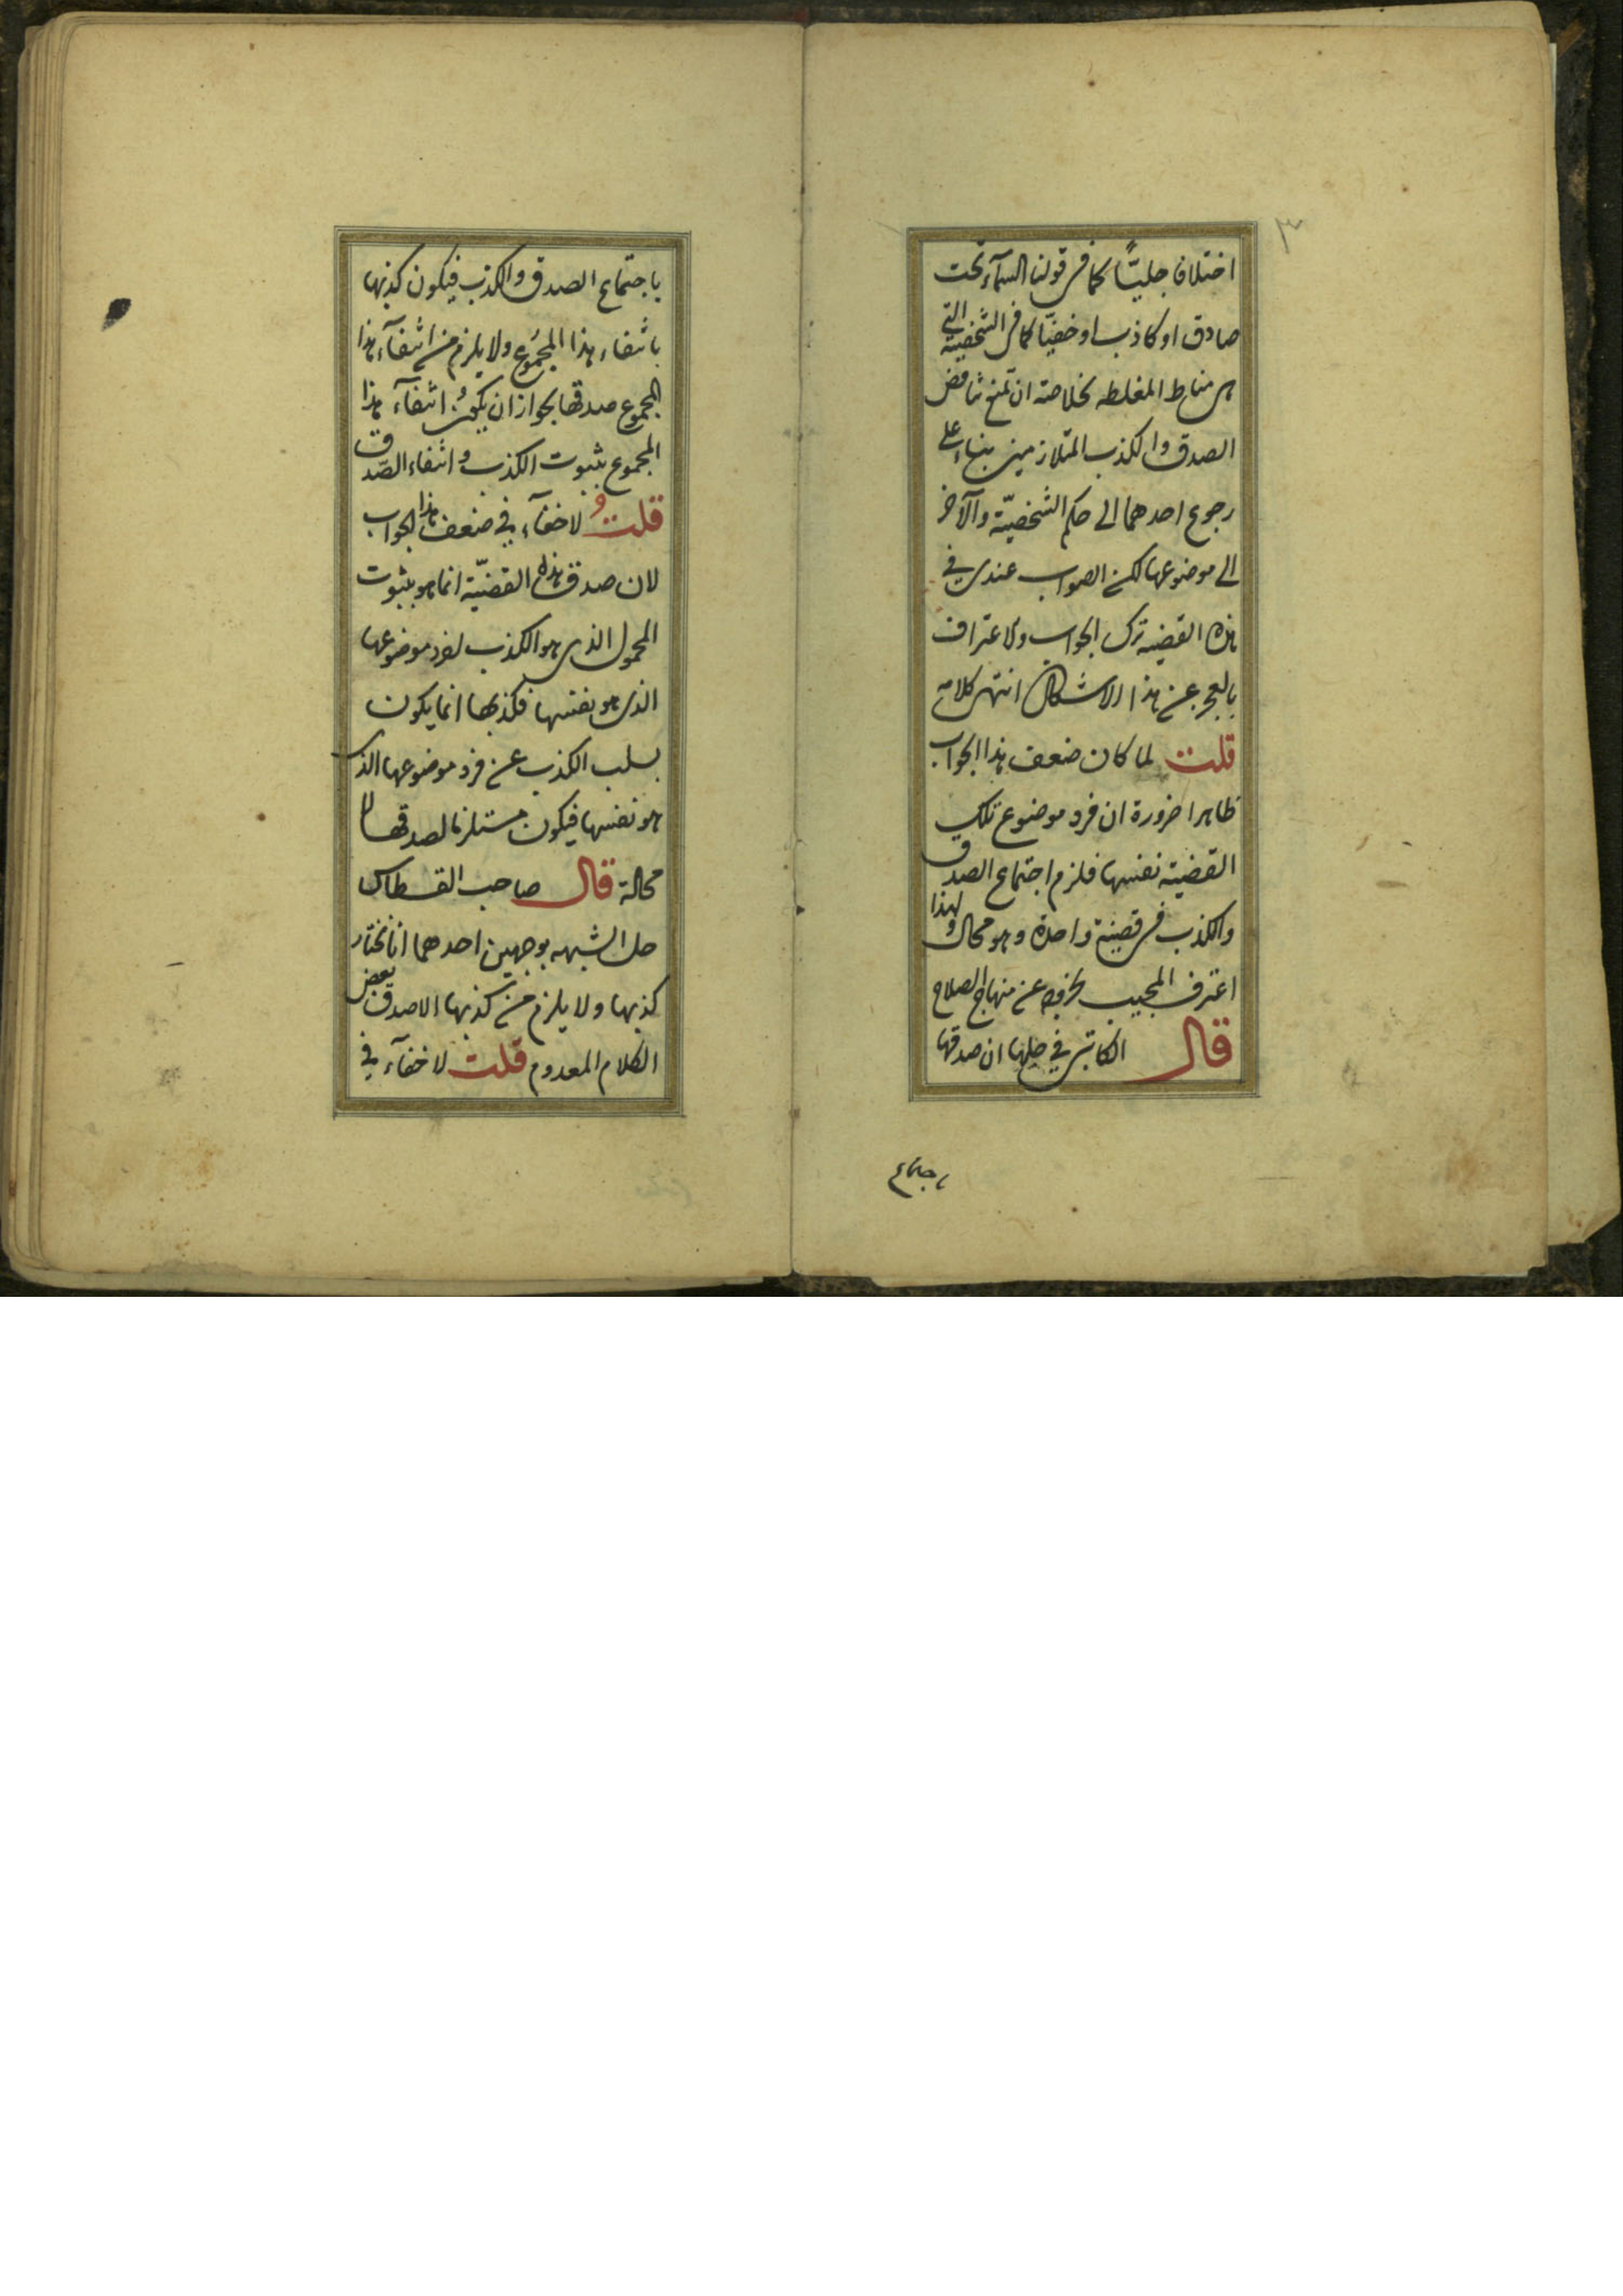 ٣
اختلافا جليّا كما فى قولنا السماء تحت
صادق او كاذب او خفيّا كما فى الشخصية التى
هى مناط المغلطه فخلاصته ان تمنع تناقض
الصدق والكذب المتلازمين بناء على
رجوع احدهما الى حكم الشخصيّة والآخر
الى موضوعها لكن الصواب عندى في
هذه القضيه ترك الجواب والاعتراف
بالعجز عن هذا الاشكال انتهى كلامه
قلت لما كان ضعف هذا الجواب
ظاهرا ضرورة ان فرد موضوع تلك
القضيته نفسها فلزم اجتماع الصدق
والكذب فى قضية واحدة وهو محال ولهذا
اعترف المجيب بخروجه عن منهاج الصلاح
قال الكاتبى في حلها ان صدقها
باجتماع
باجتماع الصدق والكذب فيكون كذبها
بانتفاء هذا المجموع ولا يلزم من انتفآء هذا
المجموع صدقها لجواز ان يكون انتفآء هذا
المجموع بثبوت الكذب وانتفاء الصدق
قلت و لا خفآء في ضعف هذا الجواب
لان صدق هذه القضيّة انما هو بثبوت
المحمول الذى هو الكذب لفرد موضوعها
الذى هو نفسها فكذبها انما يكون
بسلب الكذب عن فرد موضوعها الذى
هو نفسها فيكون مستلزما لصدقها لا
محالة قال صاحب القسطاس
حل الشبهه بوجهين احدهما انا نختار
كذبها ولا يلزم من كذبها الا صدق بعض
الكلام المعدوم قلت لا خفآء في